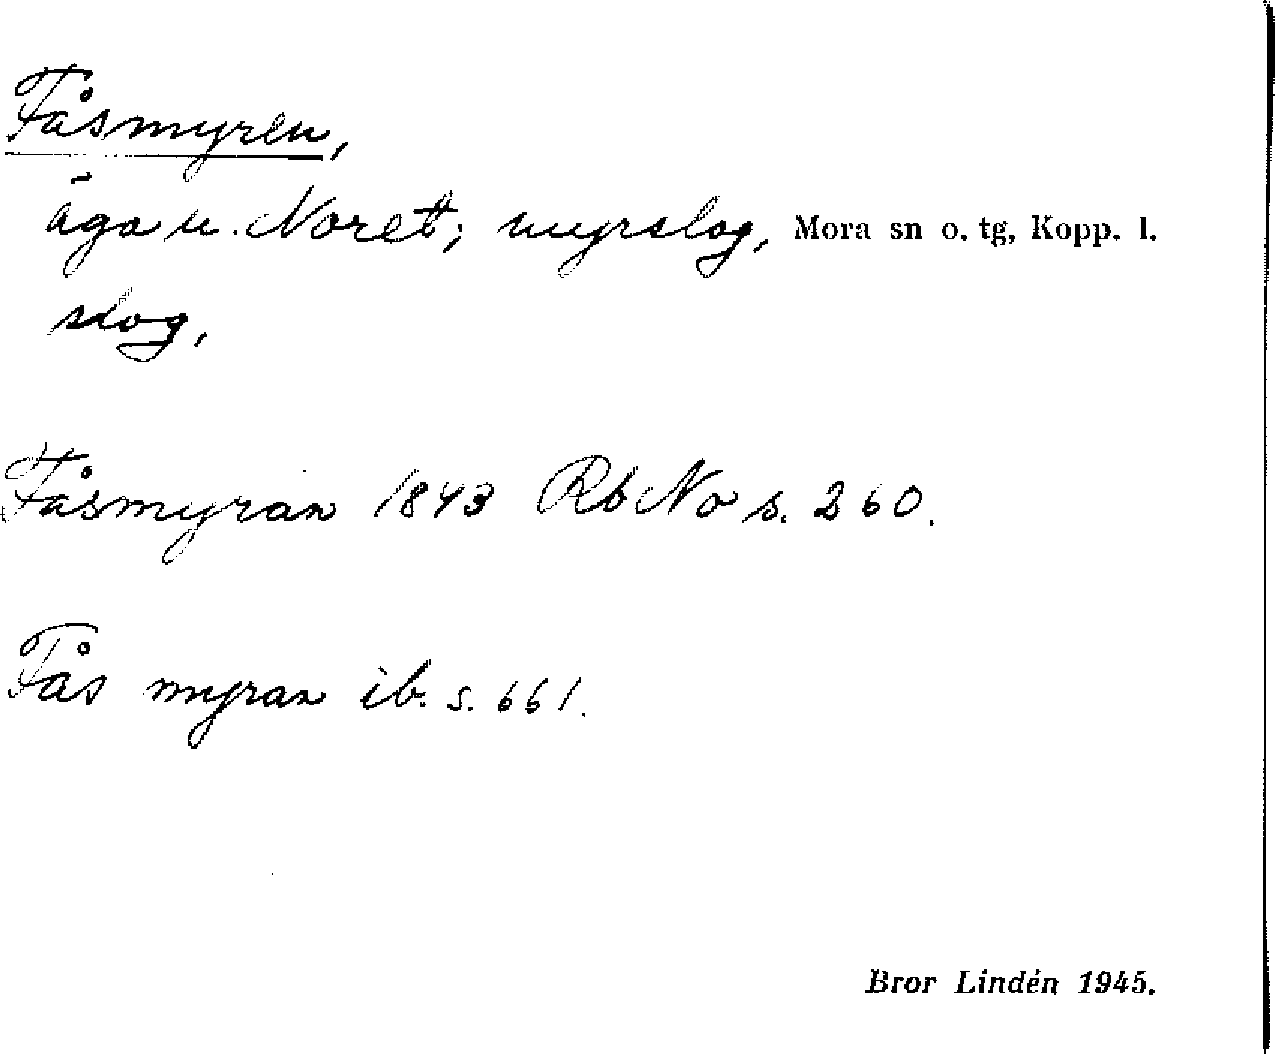 Fåsmyren,
äga u. Noret; myrslog, Mora sn o. tg, Kopp. l.
slog,
Fåsmyran 1843 Rb No s. 260.
Fås myran ib. s. 661.
Bror Lindén 1945.